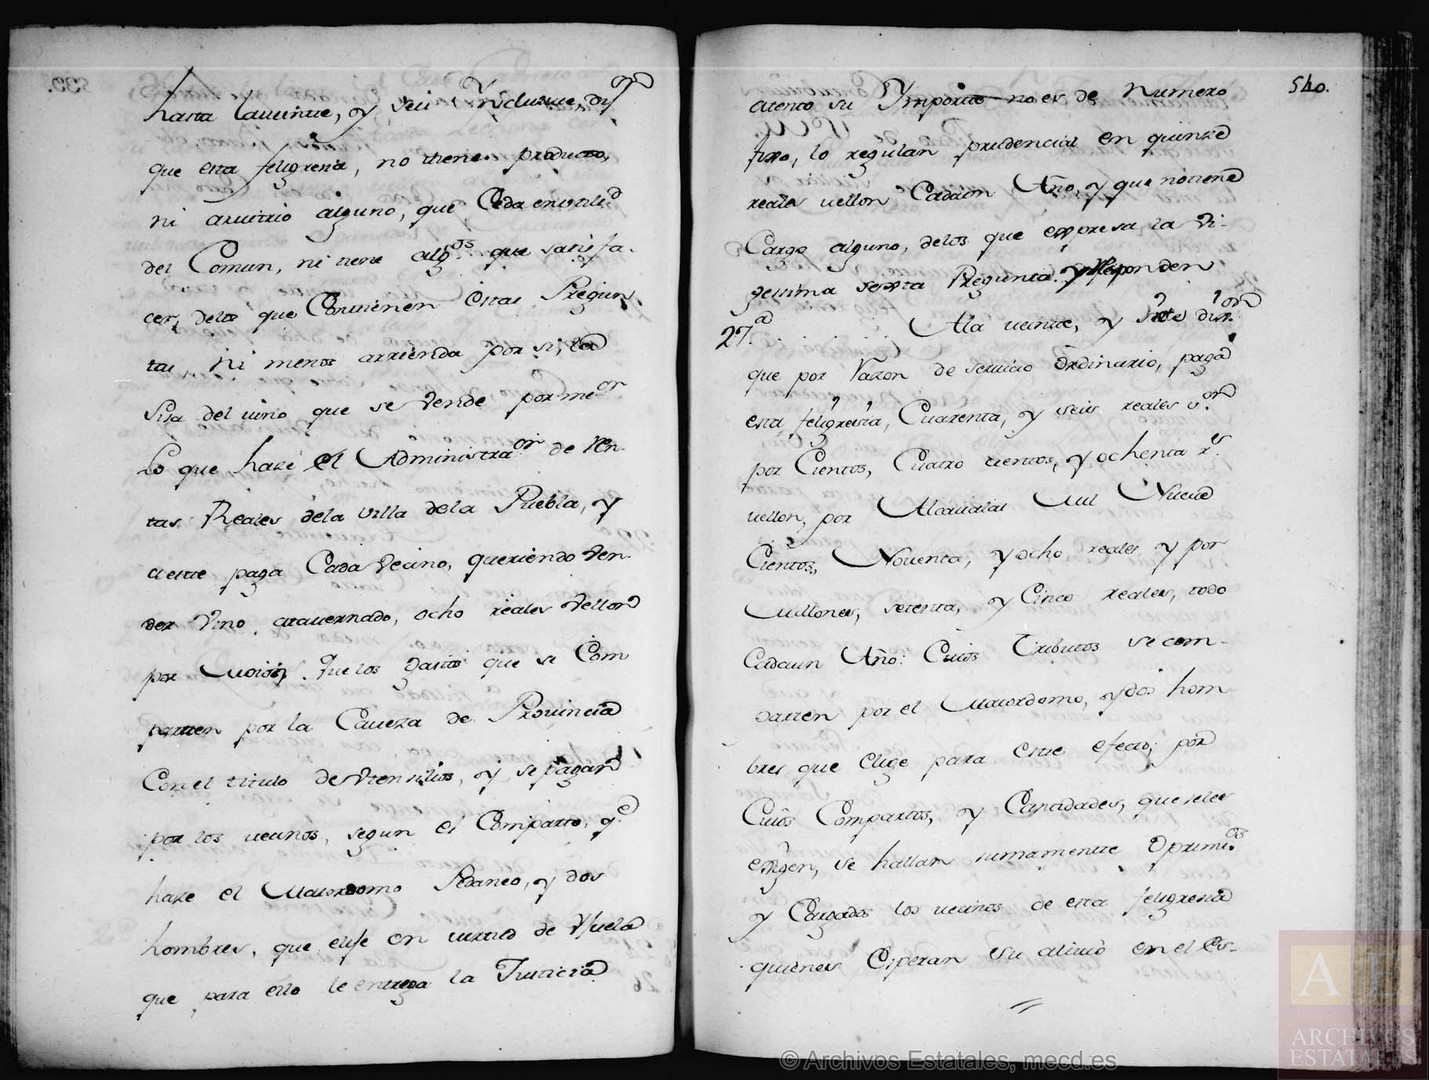 539.
hasta laveinte, y seis Ynclusive, dixⁿ
que esta feligresia, no tiene producto,
ni arvitrio alguno, que Ceda en utilid
del Comun, ni tiene algºˢ que satisfa-
cer, delos que Contienen estas Pregun
tas, Ni menos arrienda por si, la
Sisa del vino que se Vende por meºʳ
Lo que haze el Administraºʳ de Ren-
tas Reales dela villa dela Puebla, y
a este paga Cada Vecino, queriendo Ven-
der Vino atavernado, ocho reales Vellon
por Moio, Que los gastos que se Com
parten por la Caveza de Provincia
Con el titulo de Vtensilios, y se pagan
por los vecinos, segun el Comparto, qᵉ
haze el Maiordomo Pedaneo, y dos
hombres, que elije en virtud de Vereda
que para ello le entrega la Justicia
540.
atento su Ymporte no es de Numero
fixo, lo regulan prudencial en quinze
reales vellon Cadaun Año, y que no tiene
Cargo alguno, delos que expresa la Vi-
gessima sexta Pregunta. y Responden
27.ª Ala veinte, y siete dixºⁿ
que por Razon de servicio ordinario, paga
esta feligresia, Cuarenta, y seis reales vºⁿ
por Cientos, Cuatro cientos, y ochenta rˢ
vellon, por Alcavalas Mil Nueve
Cientos, Noventa, y ocho reales y por
Millones, setenta, y Cinco reales, todo
Cadaun Año: Cuios Tributos se com-
parten por el Maiordomo, y dos hom
bres que elige para este efecto, por
Cuios Compartos, y Cantidades, que seles
exigen, se hallan sumamente Oprimiºˢ
y Cargados los vecinos de esta feligresia
quienes Esperan su alivio en el Es-
© Archivos Estatales, mecd.es
AE
ARCHIVOS
ESTATALES